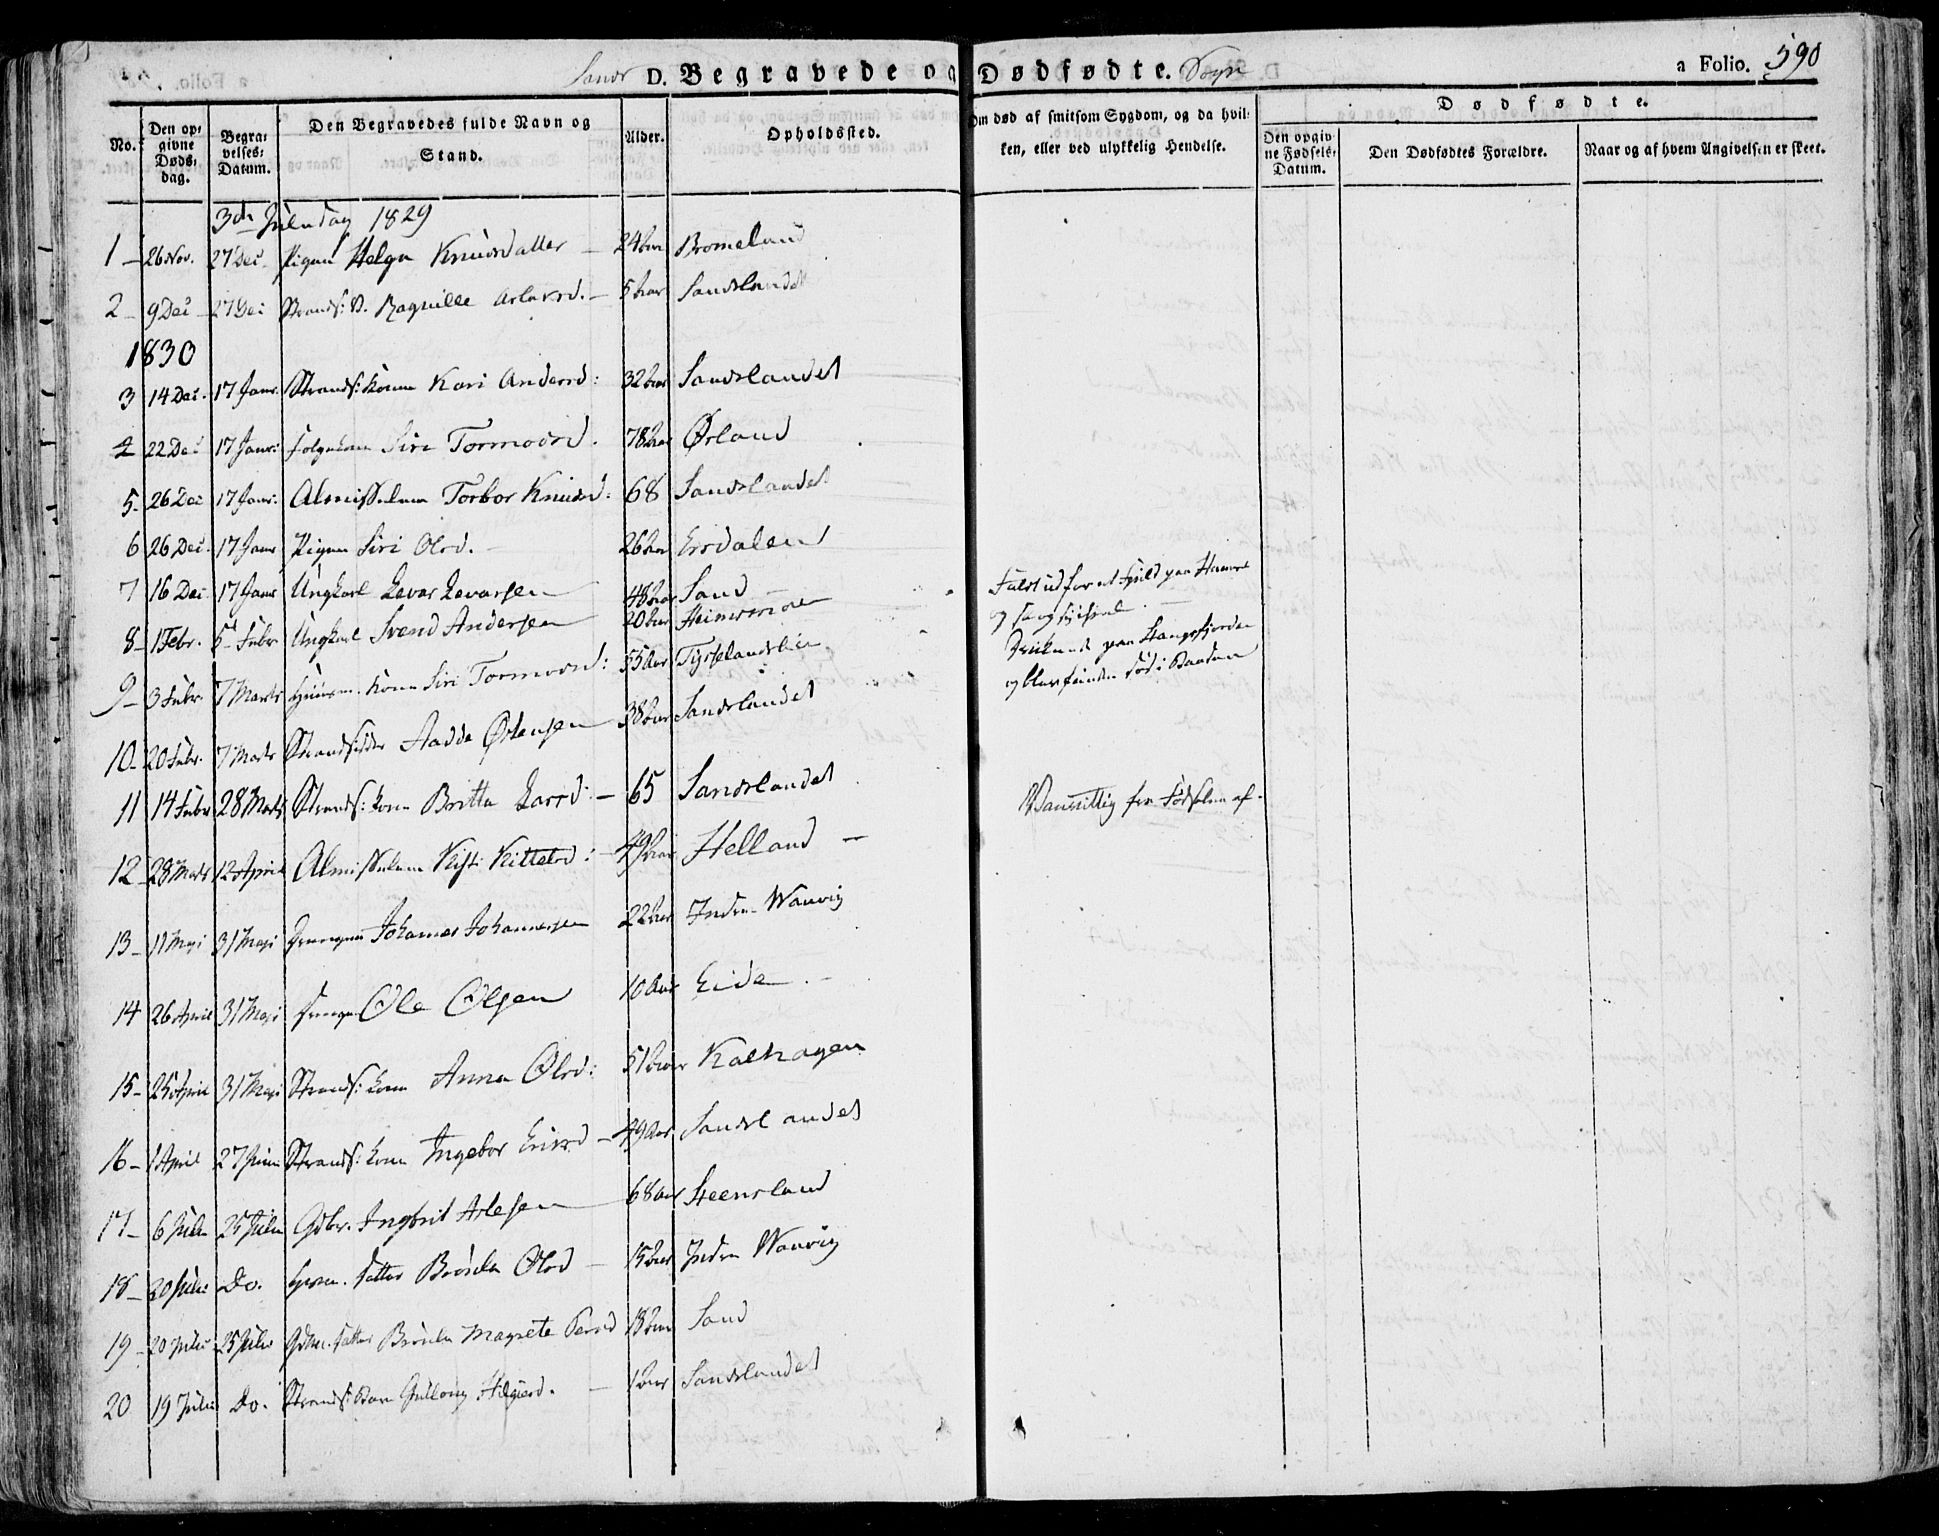 Sands D. Begravede og Dødfødte. Sogn a Folio. 590
No. Den opgivne Døds-dag. Begravelses-Datum. Den Begravedes fulde Navn og Stand. Alder. Opholdssted. Om død af smitsom Sygdom, og da hvilken, eller ved ulykkelig Hendelse. Dødfødte. Den opgivne Fødsels-Datum. Den Dødfødtes Forældre. Naar og af hvem Angivelsen er skeet.
3die Juledag 1829
1 26 Nov. 27 Dec Pigen Helga Knudsdatter 24 Aar Bromeland
2 9 Dec 27 Dec Strands: D. Ragnille Aslaksd. 5 Aar Sandslandet
1830
3 14 Dec. 17 Janr. Strands: Kone Kari Andersd: 32 Aar Sandslandet
4 22 Dec 17 Janr: Siri Tormodsd. 78 Aar Ørland
5 26 Dec 17 Janr: Almisselem Torbor Knudsd: 68 Sandslandet
6 26 Dec. 17 Janr Pigen Siri Olsd. 26 Aar Ersdalen
7 16 Dec 17 Janr Ungkarl Levar Levarsen 48 Aar Sand Faldt ud for et Field paa
8 1 Febr. 5 Febr Ungkarl Svend Andersen 20 Aar
9 3 Febr 7 Marts Huusm. Kone Siri Tormodsd: 55 Aar Tysselandslien
og blev funden død i Baaden
10 20 Febr. 7 Marts Strandsidder Aadde Østensen 38 Aar Sandslandet
11 14 Febr 28 Marts Strands: Kone Britta Larsd: 65 Sandslandet Vanvittig fra Fødselen af.
12 28 Marts 12 April Almisselem Kisti Kittelsd: 49 Aar Helland
13 11 Maji 31 Maji Drengen Johannes Johannessen 22 Aar Indre Waavig
14 26 April 31 Maji Drengen Ole Olsen 10 Aar Eide
15 25 April 31 Maji Strands: Kone Anna Olsd: 51 Aar Kalhagen
16 1 April 27 Juni Strands: Kone Ingebor Ericsd 49 Aar Sandslandet
17 6 Juli 25 Juli Gdbr. Ingbrit Atlesen 68 Aar Steensland
18 20 Juli Do. Huusm. Datter Brønla Olsd 15 Aar Indre Waavig
19 20 Juli 25 Juli Gdm. Datter Brønla Magrete Persd 18 Aar Sand
20 19 Juli Do. Strands: Barn Gullong 1 Aar Sandslandet